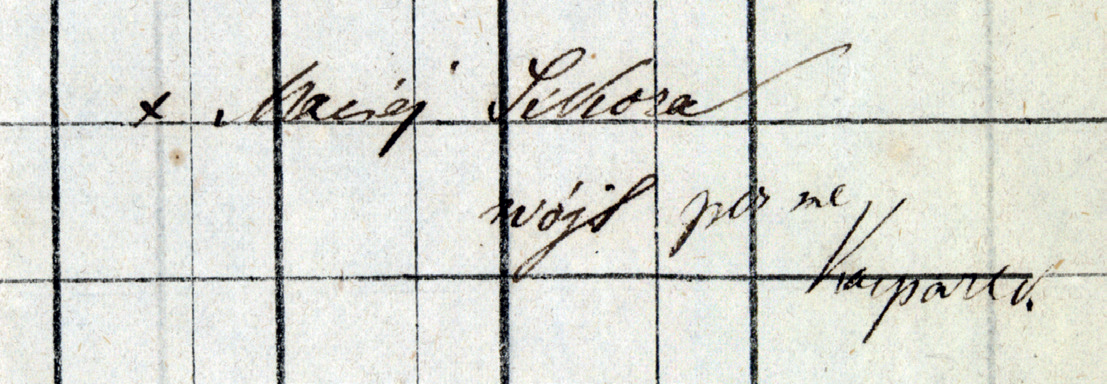 x Maciej Sikora
wójt per me
Kacpartek